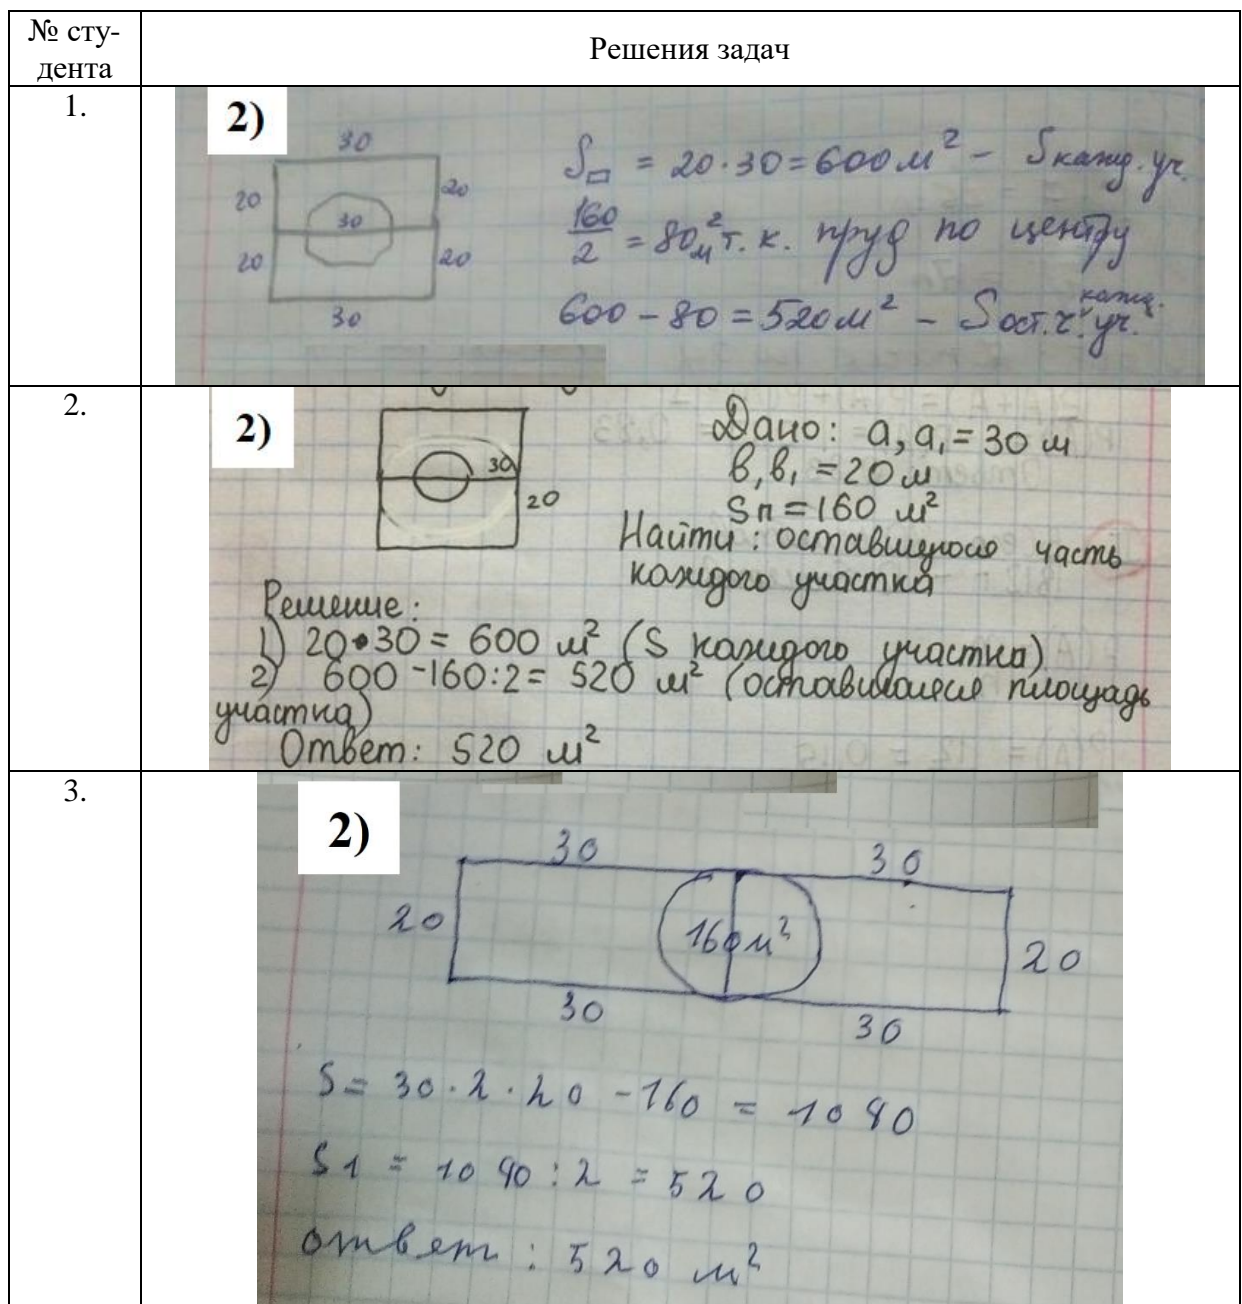 № сту-
дента
Решения задач
1.
2)
30
20
20
30
20
20
30
S▭ = 20·30=600м² - Sкажд. уч.
160/2 = 80м² т. к. пруд по центру
600 - 80 = 520м² - Sост.ч. кажд. уч.
2.
2)
30
20
Дано: a, a₁ = 30 м
в, в₁ = 20 м
Sп = 160 м²
Найти: оставшуюся часть
каждого участка
Решение:
1) 20•30 = 600 м² (S каждого участка)
2) 600 -160:2 = 520 м² (оставшаяся площадь
участка)
Ответ: 520 м²
3.
2)
30
30
20
160м²
20
30
30
S = 30·2·20 - 160 = 1040
S1 = 1040 : 2 = 520
ответ : 520 м²